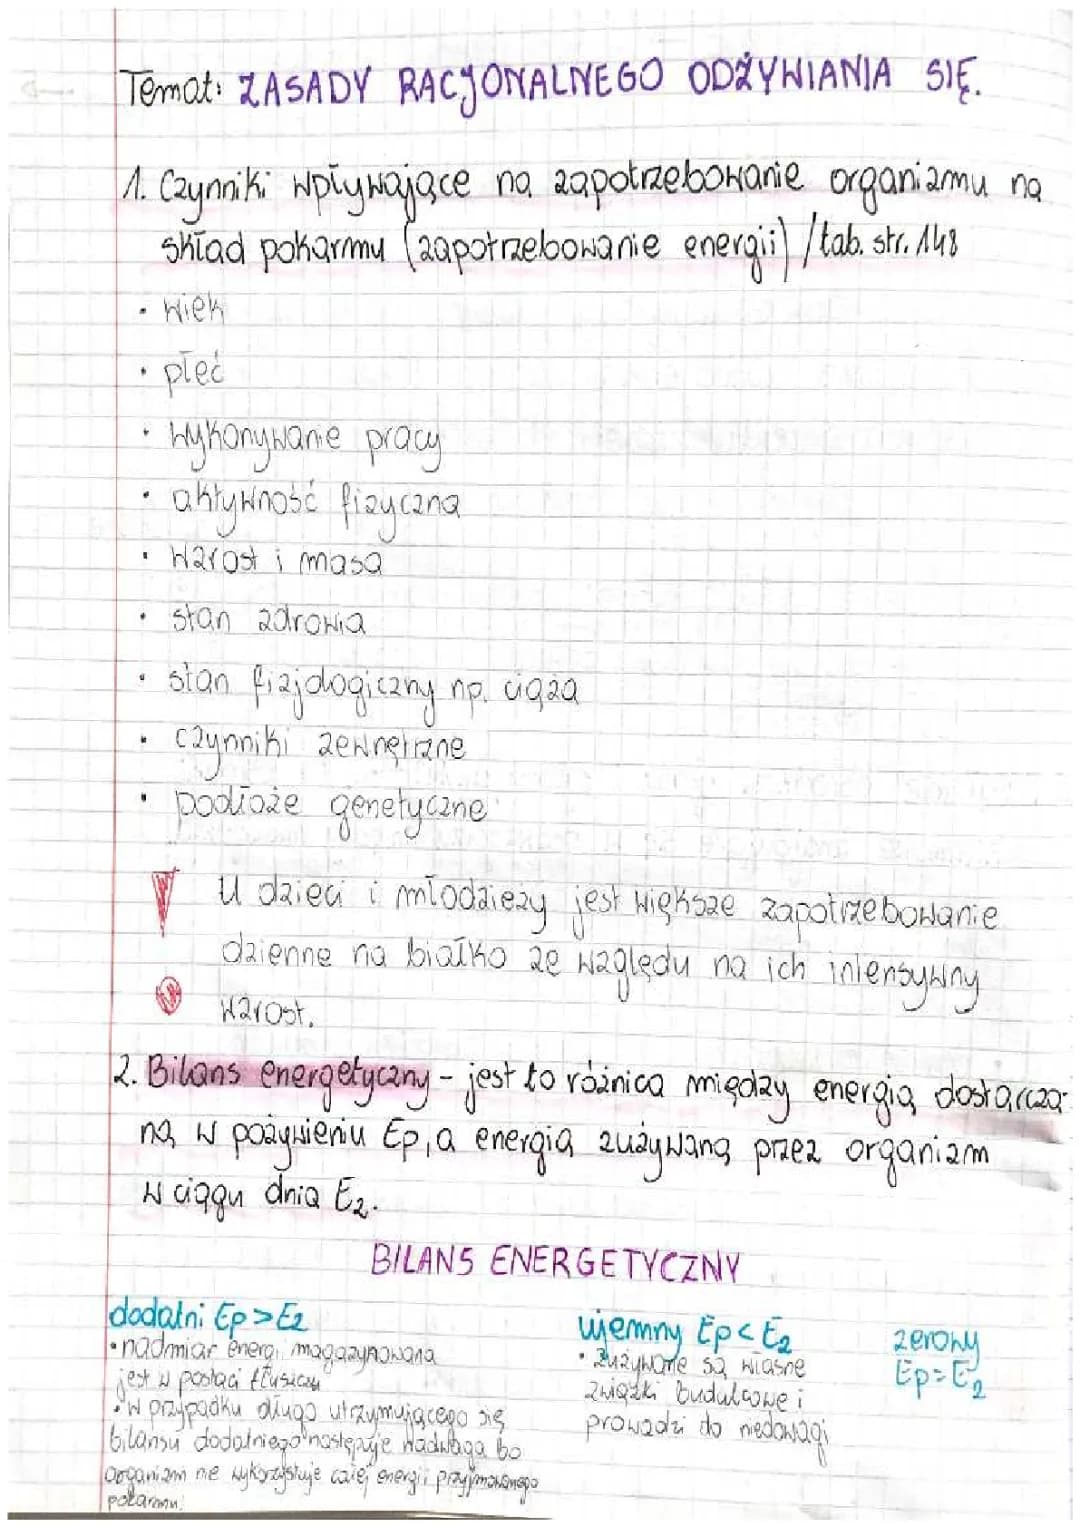 Temat: ZASADY RACJONALNEGO ODŻYWIANIA SIĘ.
1. Czynniki wpływające na zapotrzebowanie organizmu na
skład pokarmu (zapotrzebowanie energii) /tab. str. 148
• wiek
• płeć
• wykonywanie pracy
• aktywność fizyczna
• wzrost i masa
• stan zdrowia
• stan fizjologiczny np. ciąża
• czynniki zewnętrzne
• podłoże genetyczne
U dzieci i młodzieży jest większe zapotrzebowanie
dzienne na białko ze względu na ich intensywny
wzrost.
2. Bilans energetyczny - jest to różnica między energią dostarcza-
ną w pożywieniu Ep, a energią zużywaną przez organizm
w ciągu dnia Ez.
BILANS ENERGETYCZNY
dodatni Ep > Ez
• nadmiar energi magazynowana
jest w postaci tłuszczu
• w przypadku długo utrzymującego się
bilansu dodatniego następuje nadwaga bo
organizm nie wykorzystuje całej energii przyjmowanego
pokarmu.
ujemny Ep < Ez
• zużywane są własne
związki budulcowe i
prowadzi do niedowagi
zerowy
Ep = Ez